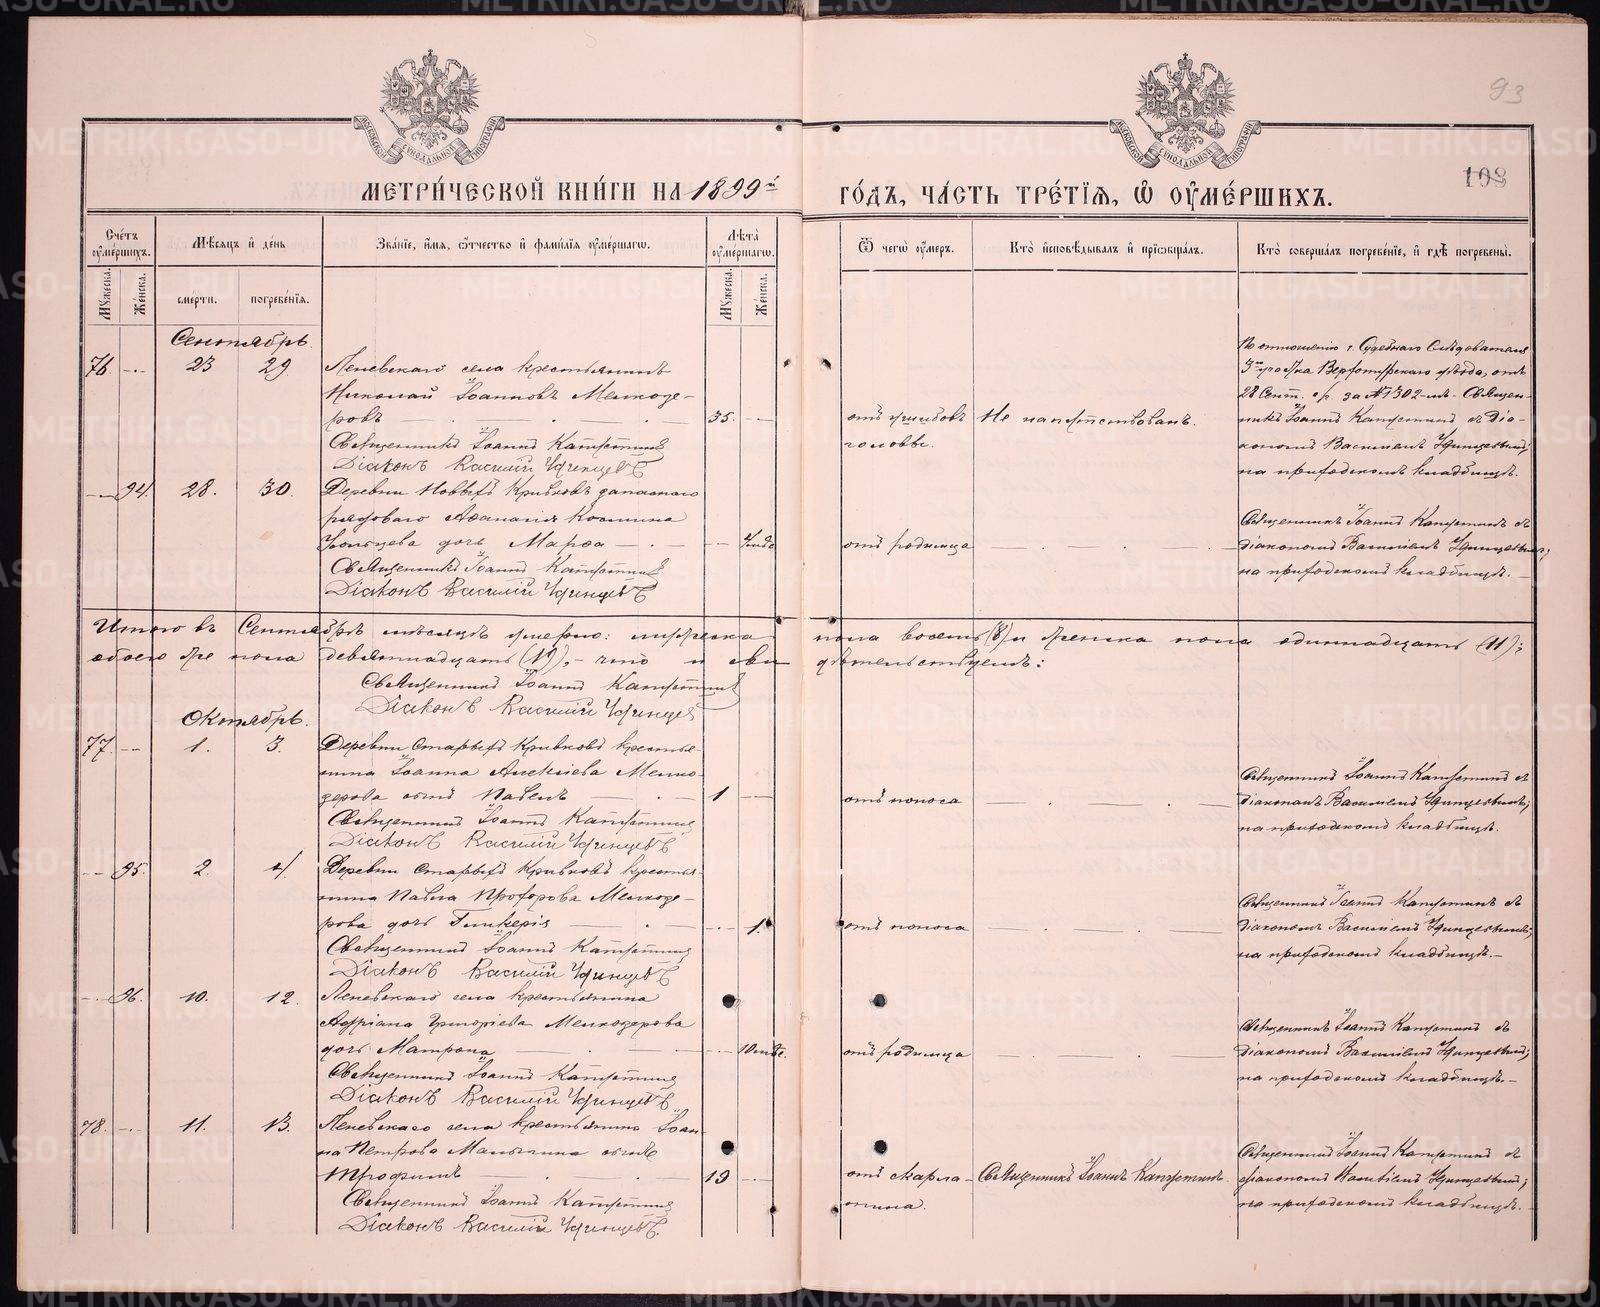 93
108
МЕТРИ́ЧЕСКОЙ КНИ́ГИ НА 1899й ГО́ДЪ, ЧА́СТЬ ТРЕ́ТІѦ, Ѽ ОУМЕ́РШИХЪ.
Сче́тъ оуме́ршихъ.
Мꙋжеска.
Же́нска.
Мѣсѧцъ и҆ де́нь
сме́рти.
погребе́нїѧ.
Зва́нїе, и҆́мѧ, ѻ҆́тчество и҆ фами́лїѧ оуме́ршагѡ.
Лѣ̀та оуме́ршагѡ.
Мꙋжеска.
Же́нска.
Ѿ чегѡ̀ оу́меръ.
Кто̀ и҆сповѣ́дывалъ и҆ прїѻбща́лъ.
Кто̀ соверша́лъ погребе́нїе, и҆ гдѣ̀ погребены̀.
Сентябрь.
76. 23 29
Леневскаго села крестьянинъ
Николай Іоанновъ Мелкозе-
ровъ 35.
Священникъ Іоаннъ Капустинъ
Діаконъ Василій Удинцевъ
отъ ушибовъ
головы.
Не напутствованъ.
По отношенію г. Судебнаго Слѣдователя
3го уч-ка Верхотурскаго уѣзда, отъ
28 Сент. с/г. за №1302-мъ Священ-
никъ Іоаннъ Капустинъ съ Діа-
кономъ Василіемъ Удинцевымъ,
на приходскомъ кладбищѣ.
94. 28. 30.
Деревни Новыхъ Кривковъ запаснаго
рядоваго Аѳанасія Космина
дочь Марѳа
Священникъ Іоаннъ Капустинъ
Діаконъ Василій Удинцевъ
отъ родимца
Священникъ Іоаннъ Капустинъ съ
діакономъ Василіемъ Удинцевымъ;
на приходскомъ кладбищѣ.
Итого въ Сентябрѣ мѣсяцѣ умерло: мужеска пола восемь (8) и женска пола одиннадцать (11);
обоего же пола девятнадцать (19), - что и свидѣтельствуемъ:
Священникъ Іоаннъ Капустинъ
Діаконъ Василій Удинцевъ
Октябрь.
77. 1. 3.
Деревни Старыхъ Кривковъ кресть-
янина Іоанна Алексіева Мелко-
зерова сынъ Павелъ 1
Священникъ Іоаннъ Капустинъ
Діаконъ Василій Удинцевъ
отъ поноса
Священникъ Іоаннъ Капустинъ съ
діакономъ Василіемъ Удинцевымъ;
на приходскомъ кладбищѣ.
95. 2. 4.
Деревни Старыхъ Кривковъ кресть-
янина Павла Прохорова Мелкозе-
рова дочь Гликерія 1
Священникъ Іоаннъ Капустинъ
Діаконъ Василій Удинцевъ
отъ поноса
Священникъ Іоаннъ Капустинъ съ
діакономъ Василіемъ Удинцевымъ;
на приходскомъ кладбищѣ.-
96. 10. 12.
Леневскаго села крестьянина
Адріана Григоріева Мелкозерова
дочь Матрона 10 мѣс.
Священникъ Іоаннъ Капустинъ
Діаконъ Василій Удинцевъ
отъ родимца
Священникъ Іоаннъ Капустинъ съ
діакономъ Василіемъ Удинцевымъ;
на приходскомъ кладбищѣ.-
78. 11. 13.
Леневскаго села крестьянина Іоан-
на Петрова Малыгина сынъ
Трофимъ 19
Священникъ Іоаннъ Капустинъ
Діаконъ Василій Удинцевъ.
отъ скарла-
тина.
Священникъ Іоаннъ Капустинъ.
Священникъ Іоаннъ Капустинъ съ
діакономъ Василіемъ Удинцевымъ;
на приходскомъ кладбищѣ.
METRIKI.GASO-URAL.RU